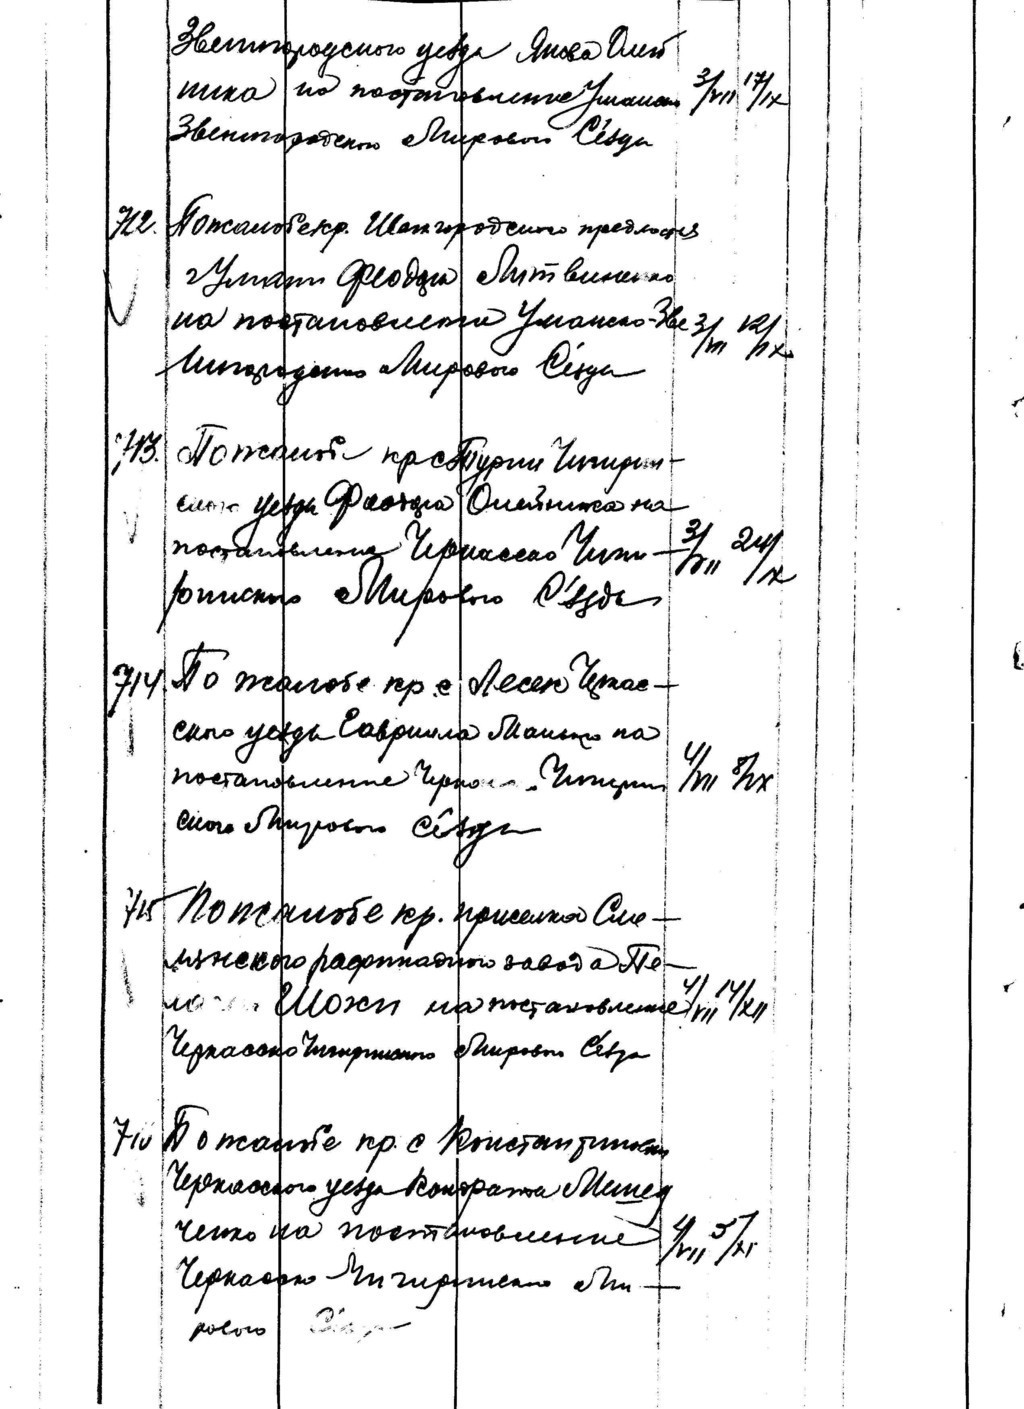 Звенигородского уезда Якова Олей
ника на постановление Уманско 3/VII 17/IX
Звенигородского Мирового Сезда
712. По жалобе кр. Шенгородского предместья
г Умани Феодора Литвиненко
на постановление Уманско-Зве 3/VII 12/IX
нигородского Мирового Сезда
713. По жалобе кр с Турии Чигирин-
ского уезда Феодора Олейника на
постановление Черкасско Чиги- 3/VII 24/IX
ринского Мирового С'езда
714 По жалобе кр. с Лесек Черкас-
ского уезда Гавриила Манько на
постановление Черкасс Чигирин 4/VII 8/IX
ского Мирового Сезда
715 По жалобе кр. приселка Сме-
лянского рафинадного завода Пе-
Шохи на постановление 4/VII 14/XII
Черкасско Чигиринского Мирового Сезда
716 По жалобе кр. с Константиновки
Черкасского уезда Кондрата Мед
ченко на постановление 4/VII 5/XI
Черкасско-Чигиринского Ми-
рового Сезда